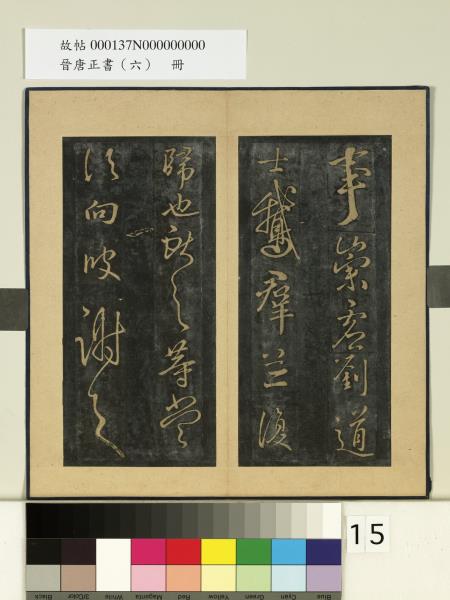 故帖 000137N000000000
晉唐正書（六） 冊
事崇虛劉道
士鵝羣並復
歸也獻之等當
須向彼謝之
15
Blue Cyan Green Yellow Red Magenta White 3/Color Black